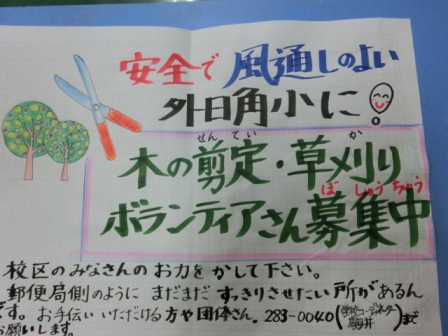 安全で 風通しのよい
外日角小に
せんてい か
木の剪定・草刈り
ぼしゅうちゅう
ボランティアさん募集中
校区のみなさんのお力をかして下さい。
郵便局側のように まだまだ すっきりさせたい 所があるん
です。お手伝いいただける方や団体さん。283-0040(学校コーディネーター)まで
お願いします。